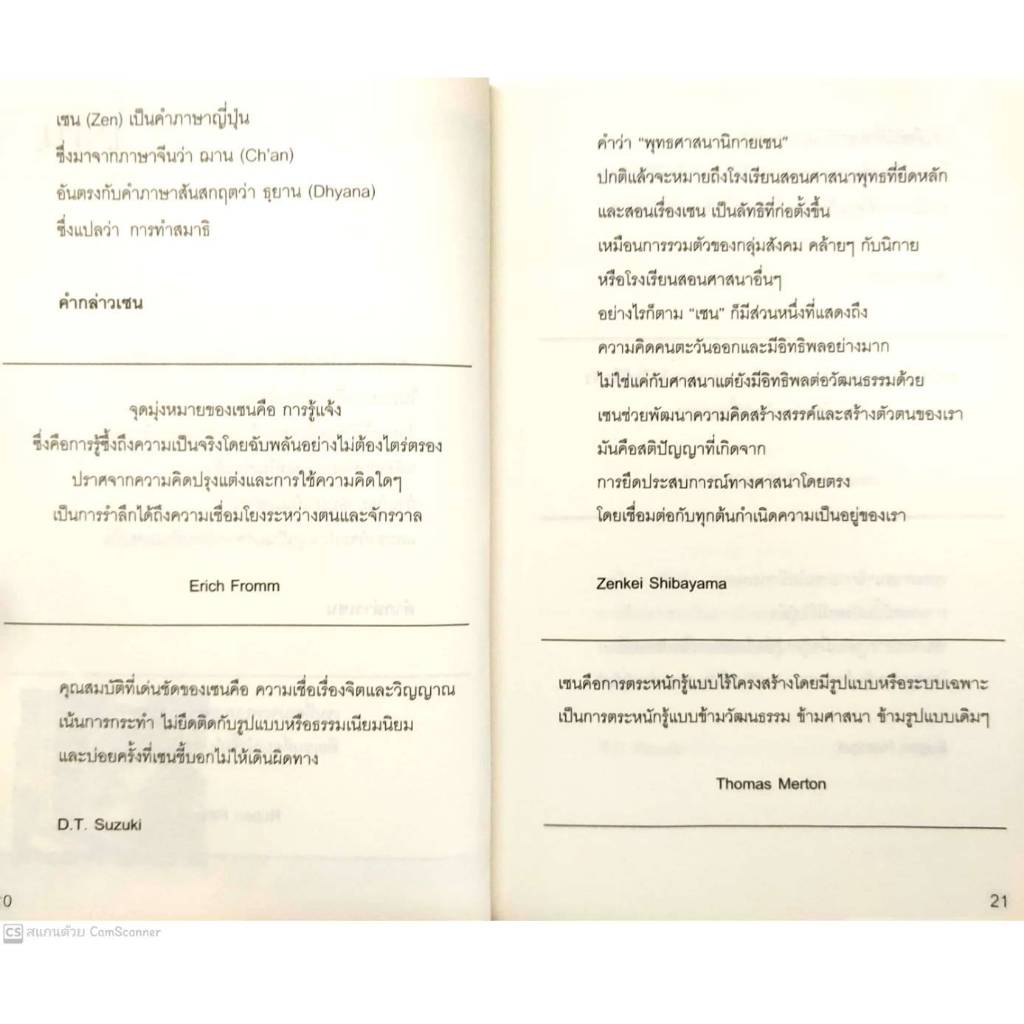 เซน (Zen) เป็นคำภาษาญี่ปุ่น
ซึ่งมาจากภาษาจีนว่า ฌาน (Ch'an)
อันตรงกับคำภาษาสันสกฤตว่า ธฺยาน (Dhyana)
ซึ่งแปลว่า การทำสมาธิ
คำกล่าวเซน
จุดมุ่งหมายของเซนคือ การรู้แจ้ง
ซึ่งคือการรู้ซึ้งถึงความเป็นจริงโดยฉับพลันอย่างไม่ต้องไตร่ตรอง
ปราศจากความคิดปรุงแต่งและการใช้ความคิดใดๆ
เป็นการรำลึกได้ถึงความเชื่อมโยงระหว่างตนและจักรวาล
Erich Fromm
คุณสมบัติที่เด่นชัดของเซนคือ ความเชื่อเรื่องจิตและวิญญาณ
เน้นการกระทำ ไม่ยึดติดกับรูปแบบหรือธรรมเนียมนิยม
และบ่อยครั้งที่เซนชี้บอกไม่ให้เดินผิดทาง
D.T. Suzuki
0
คำว่า "พุทธศาสนานิกายเซน"
ปกติแล้วจะหมายถึงโรงเรียนสอนศาสนาพุทธที่ยึดหลัก
และสอนเรื่องเซน เป็นลัทธิที่ก่อตั้งขึ้น
เหมือนการรวมตัวของกลุ่มสังคม คล้ายๆ กับนิกาย
หรือโรงเรียนสอนศาสนาอื่นๆ
อย่างไรก็ตาม "เซน" ก็มีส่วนหนึ่งที่แสดงถึง
ความคิดคนตะวันออกและมีอิทธิพลอย่างมาก
ไม่ใช่แค่กับศาสนาแต่ยังมีอิทธิพลต่อวัฒนธรรมด้วย
เซนช่วยพัฒนาความคิดสร้างสรรค์และสร้างตัวตนของเรา
มันคือสติปัญญาที่เกิดจาก
การยึดประสบการณ์ทางศาสนาโดยตรง
โดยเชื่อมต่อกับทุกต้นกำเนิดความเป็นอยู่ของเรา
Zenkei Shibayama
เซนคือการตระหนักรู้แบบไร้โครงสร้างโดยมีรูปแบบหรือระบบเฉพาะ
เป็นการตระหนักรู้แบบข้ามวัฒนธรรม ข้ามศาสนา ข้ามรูปแบบเดิมๆ
Thomas Merton
21
CS สแกนด้วย CamScanner